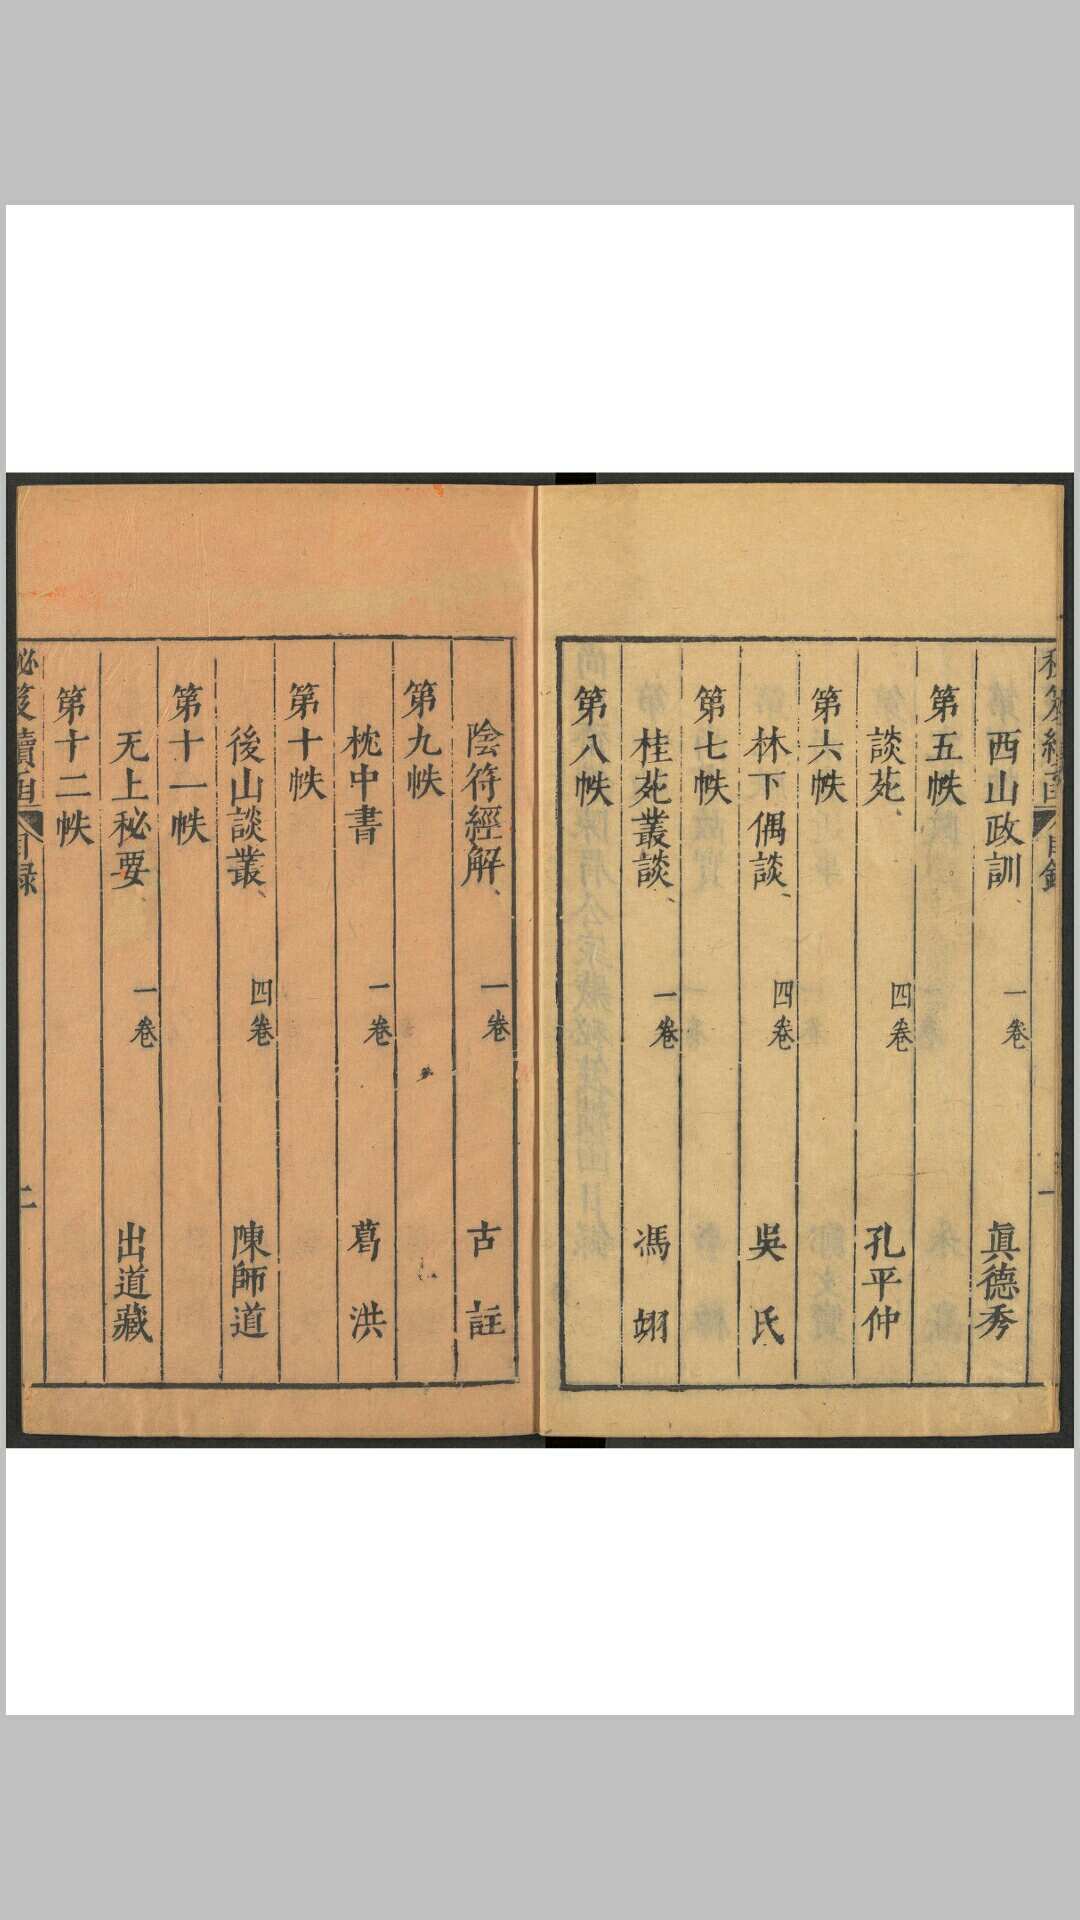 西山政訓、 一卷 眞德秀
第五帙
談苑、 四卷 孔平仲
第六帙
林下偶談、 四卷 吳氏
第七帙
桂苑叢談、 一卷 馮翊
第八帙
陰符經解、 一卷 古註
第九帙
枕中書 一卷 葛洪
第十帙
後山談叢、 四卷 陳師道
第十一帙
无上秘要、 一卷 出道藏
第十二帙
秘笈續函 目録 二